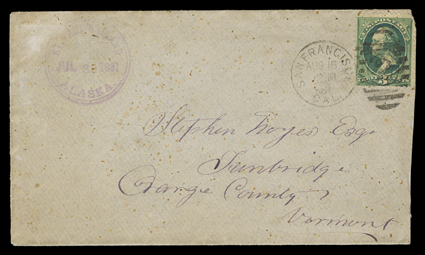 JUL 1881
ALASKA
SAN FRANCISCO
AUG 16
CAL.
Stephen Noyes Esq
Tunbridge
Orange County
Vermont